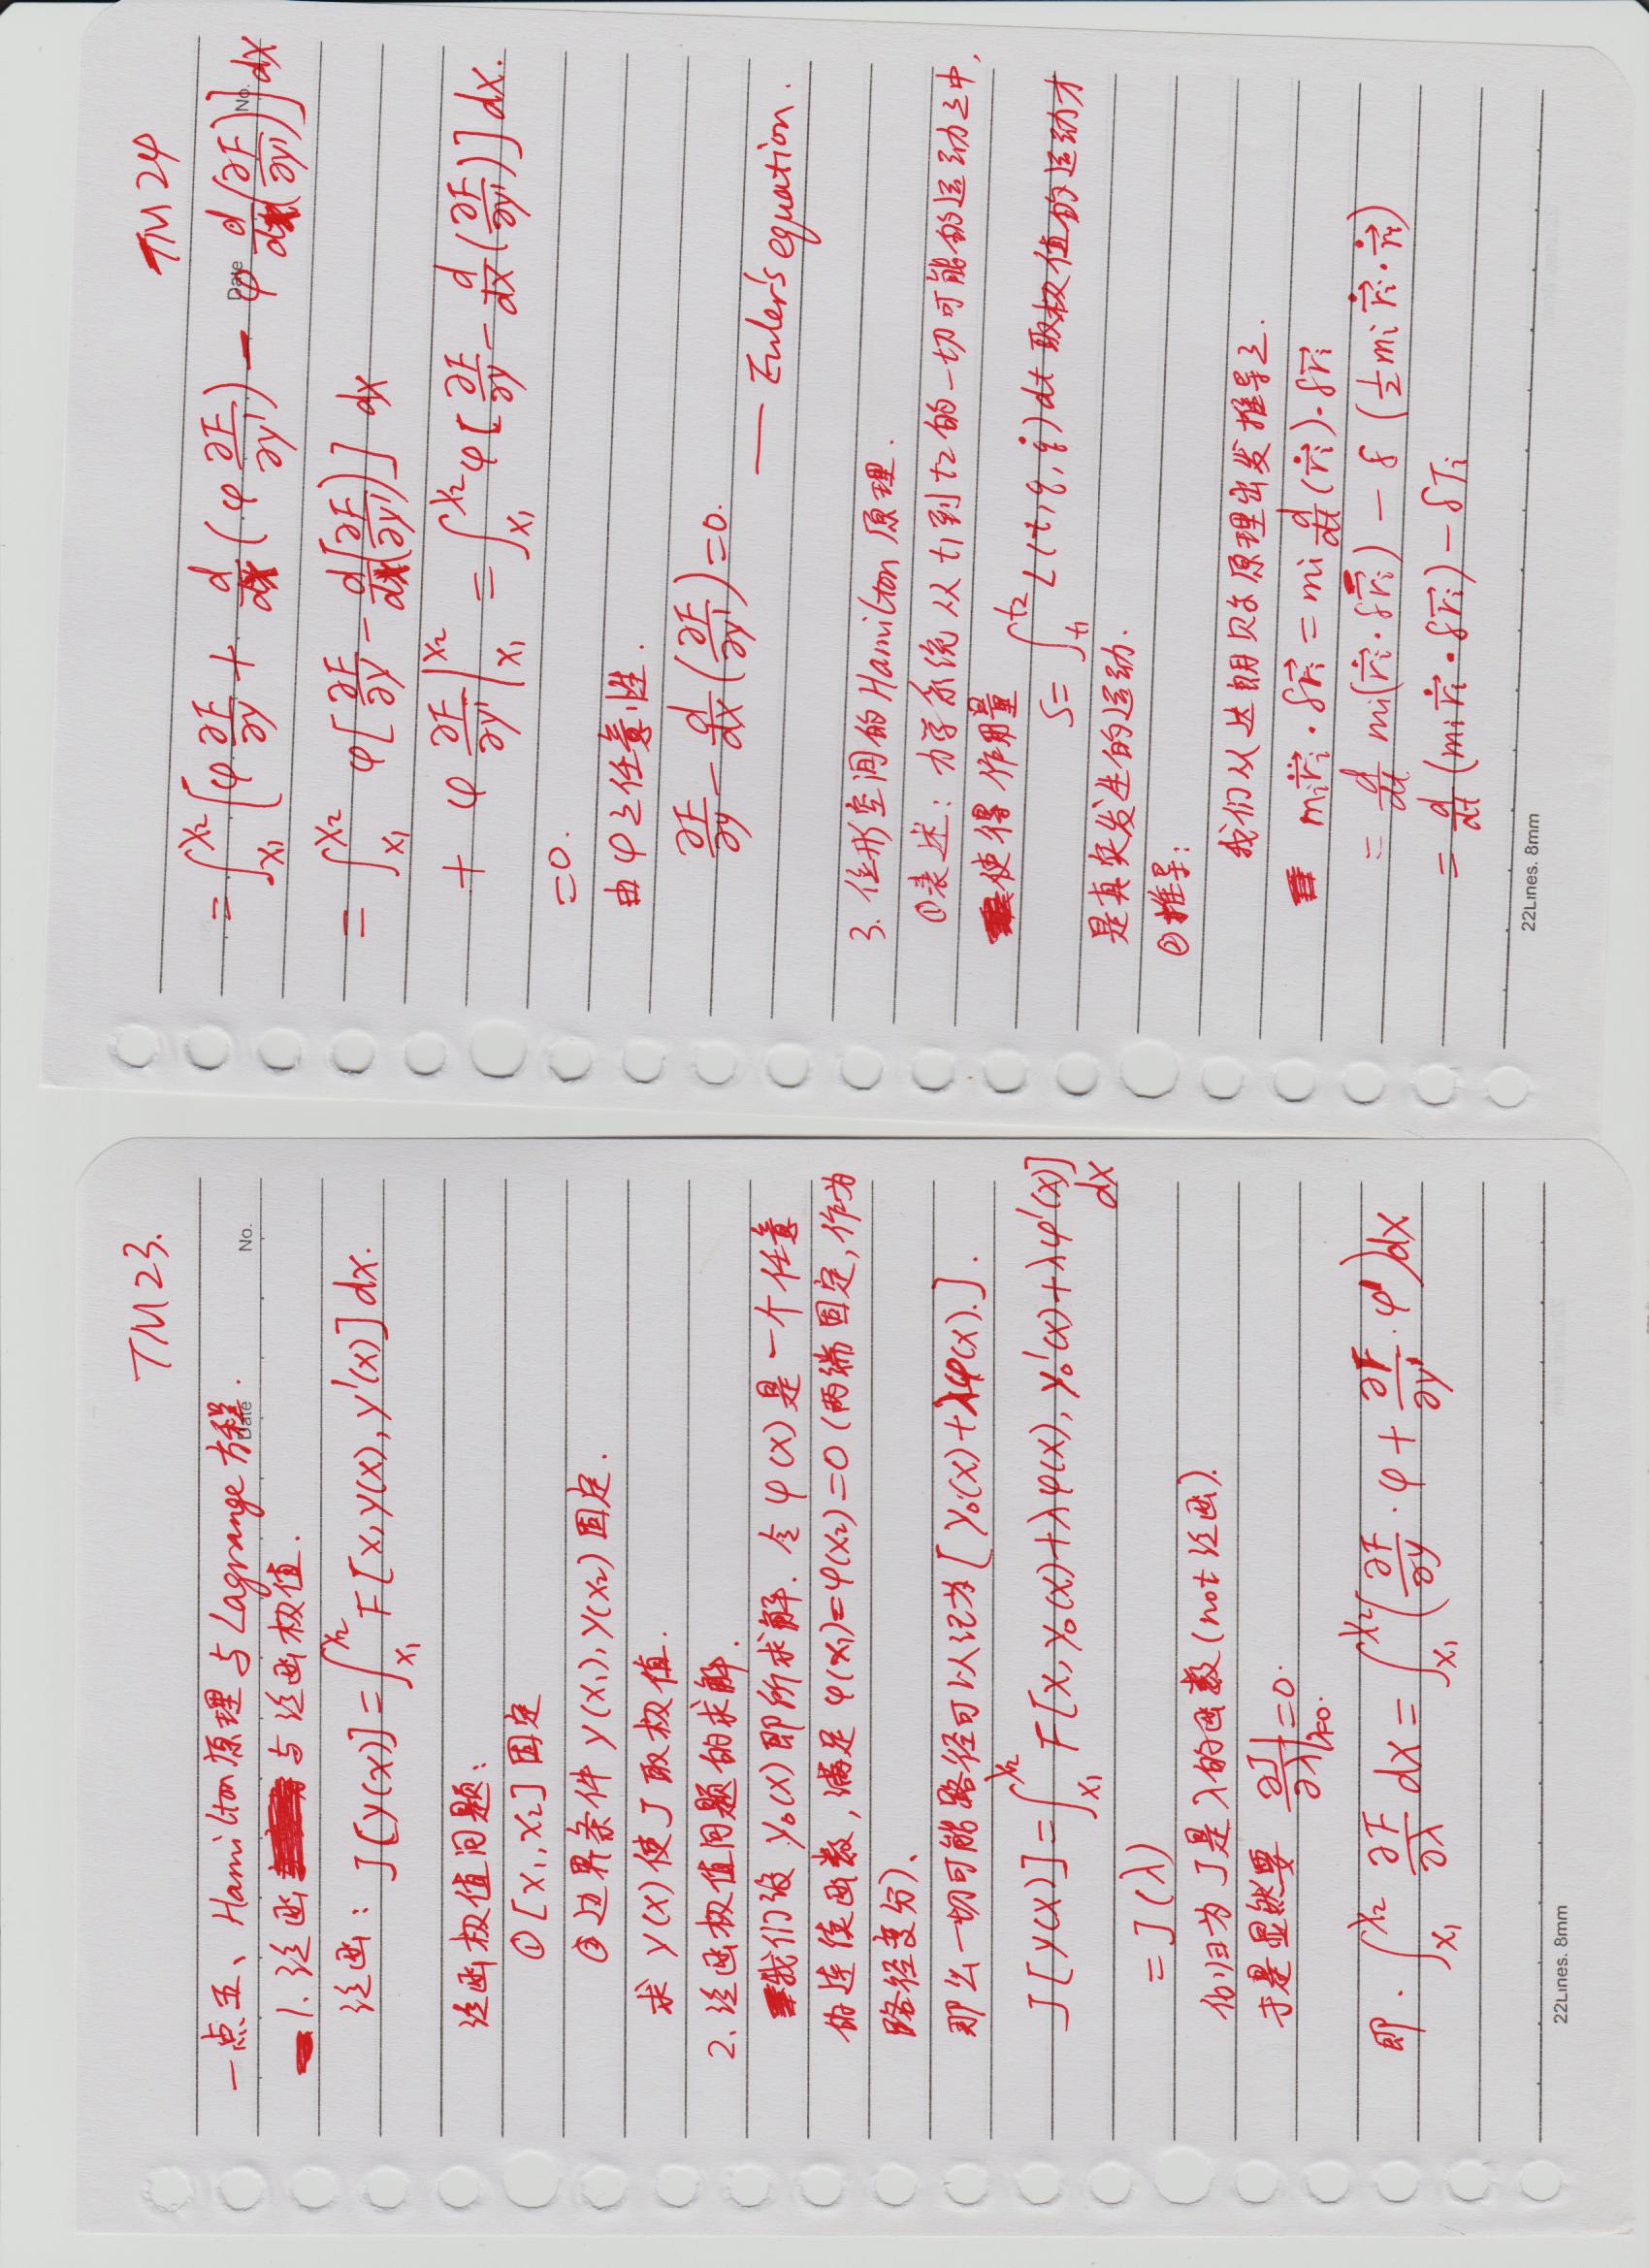 TM23.
一点五、Hamilton原理与Lagrange方程.
Date No.
1. 泛函与泛函极值.
泛函: J[y(x)]=∫_{x₁}^{x₂} F[x,y(x),y'(x)]dx.
泛函极值问题:
①[x₁,x₂]固定
②边界条件 y(x₁),y(x₂)固定.
求 y(x)使J取极值.
2. 泛函极值问题的求解.
我们设 y₀(x)即所求解. 令φ(x)是一个任意
的连续函数,满足φ(x₁)=φ(x₂)=0(两端固定,作为
路径变分).
那么一切可能路径可以记为[y₀(x)+λφ(x).].
J[y(x)]=∫_{x₁}^{x₂} F[x,y₀(x)+λφ(x),y₀'(x)+λφ'(x)]
dx
=J(λ)
归为J是λ的函数(not泛函).
于是显然要 ∂J/∂λ|_{λ=0}=0.
即. ∫_{x₁}^{x₂} ∂F/∂λ dx=∫_{x₁}^{x₂}(∂F/∂y·φ+∂F/∂y'·φ')dx
22Lines. 8mm
TM24
Date No.
=∫_{x₁}^{x₂}[φ ∂F/∂y + d/dx(φ ∂F/∂y') - φ d/dx(∂F/∂y')]dx
=∫_{x₁}^{x₂} φ[∂F/∂y - d/dx(∂F/∂y')] dx
+ φ ∂F/∂y'|_{x₁}^{x₂} =∫_{x₁}^{x₂}φ[∂F/∂y - d/dx(∂F/∂y')]dx.
=0.
由φ之任意性.
∂F/∂y - d/dx(∂F/∂y')=0.
— Euler's equation.
3. 位形空间的Hamilton原理.
①表述: 力学系统从t₁到t₂的一切可能的运动之中,
使得作用量
S=∫_{t₁}^{t₂} L(t,q,q̇)dt 取极值的运动才
是真实发生的运动.
②推导:
我们从达朗贝尔原理出发推导之.
mᵢr⃗̈ᵢ·δr⃗ᵢ = mᵢ d/dt(r⃗̇ᵢ)·δr⃗ᵢ
= d/dt mᵢ(r⃗̇ᵢ·δr⃗ᵢ) - δ(½mᵢ r⃗̇ᵢ·r⃗̇ᵢ)
= d/dt(mᵢr⃗̇ᵢ·δr⃗ᵢ) - δTᵢ
22Lines. 8mm